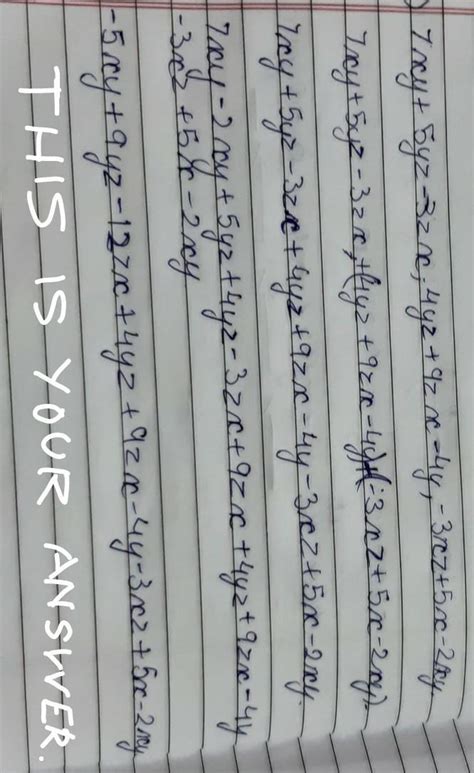 7xy + 5yz - 3zx, 4yz + 9zx - 4y, -3xz + 5x - 2xy
7xy + 5yz - 3zx, + (4yz + 9zx - 4y) + (-3xz + 5x - 2xy)
7xy + 5yz - 3zx + 4yz + 9zx - 4y - 3xz + 5x - 2xy
7xy - 2xy + 5yz + 4yz - 3zx + 9zx + 4yz + 9zx - 4y
-3xz + 5x - 2xy
-5xy + 9yz - 12zx + 4yz + 9zx - 4y - 3xz + 5x - 2xy
THIS IS YOUR ANSWER.